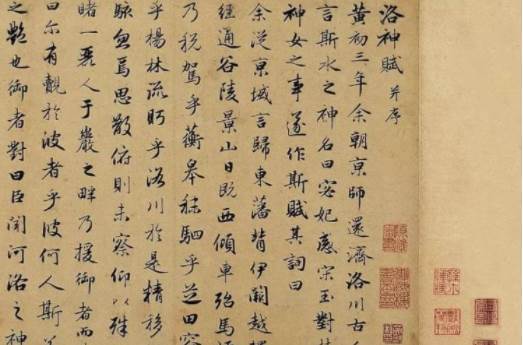 洛神賦 并序
黃初三年余朝京師還濟洛川古
言斯水之神名曰宓妃感宋玉對
神女之事遂作斯賦其詞曰
余從京域言歸東藩背伊闕越
經通谷陵景山日既西傾車殆馬
乃稅駕乎蘅皋秣駟乎芝田容
乎楊林流眄乎洛川於是精移
駭忽焉思散俯則未察仰以殊
睹一麗人于巖之畔乃援御者而
曰尔有覿於彼者乎彼何人斯
之艷也御者對曰臣聞河洛之神